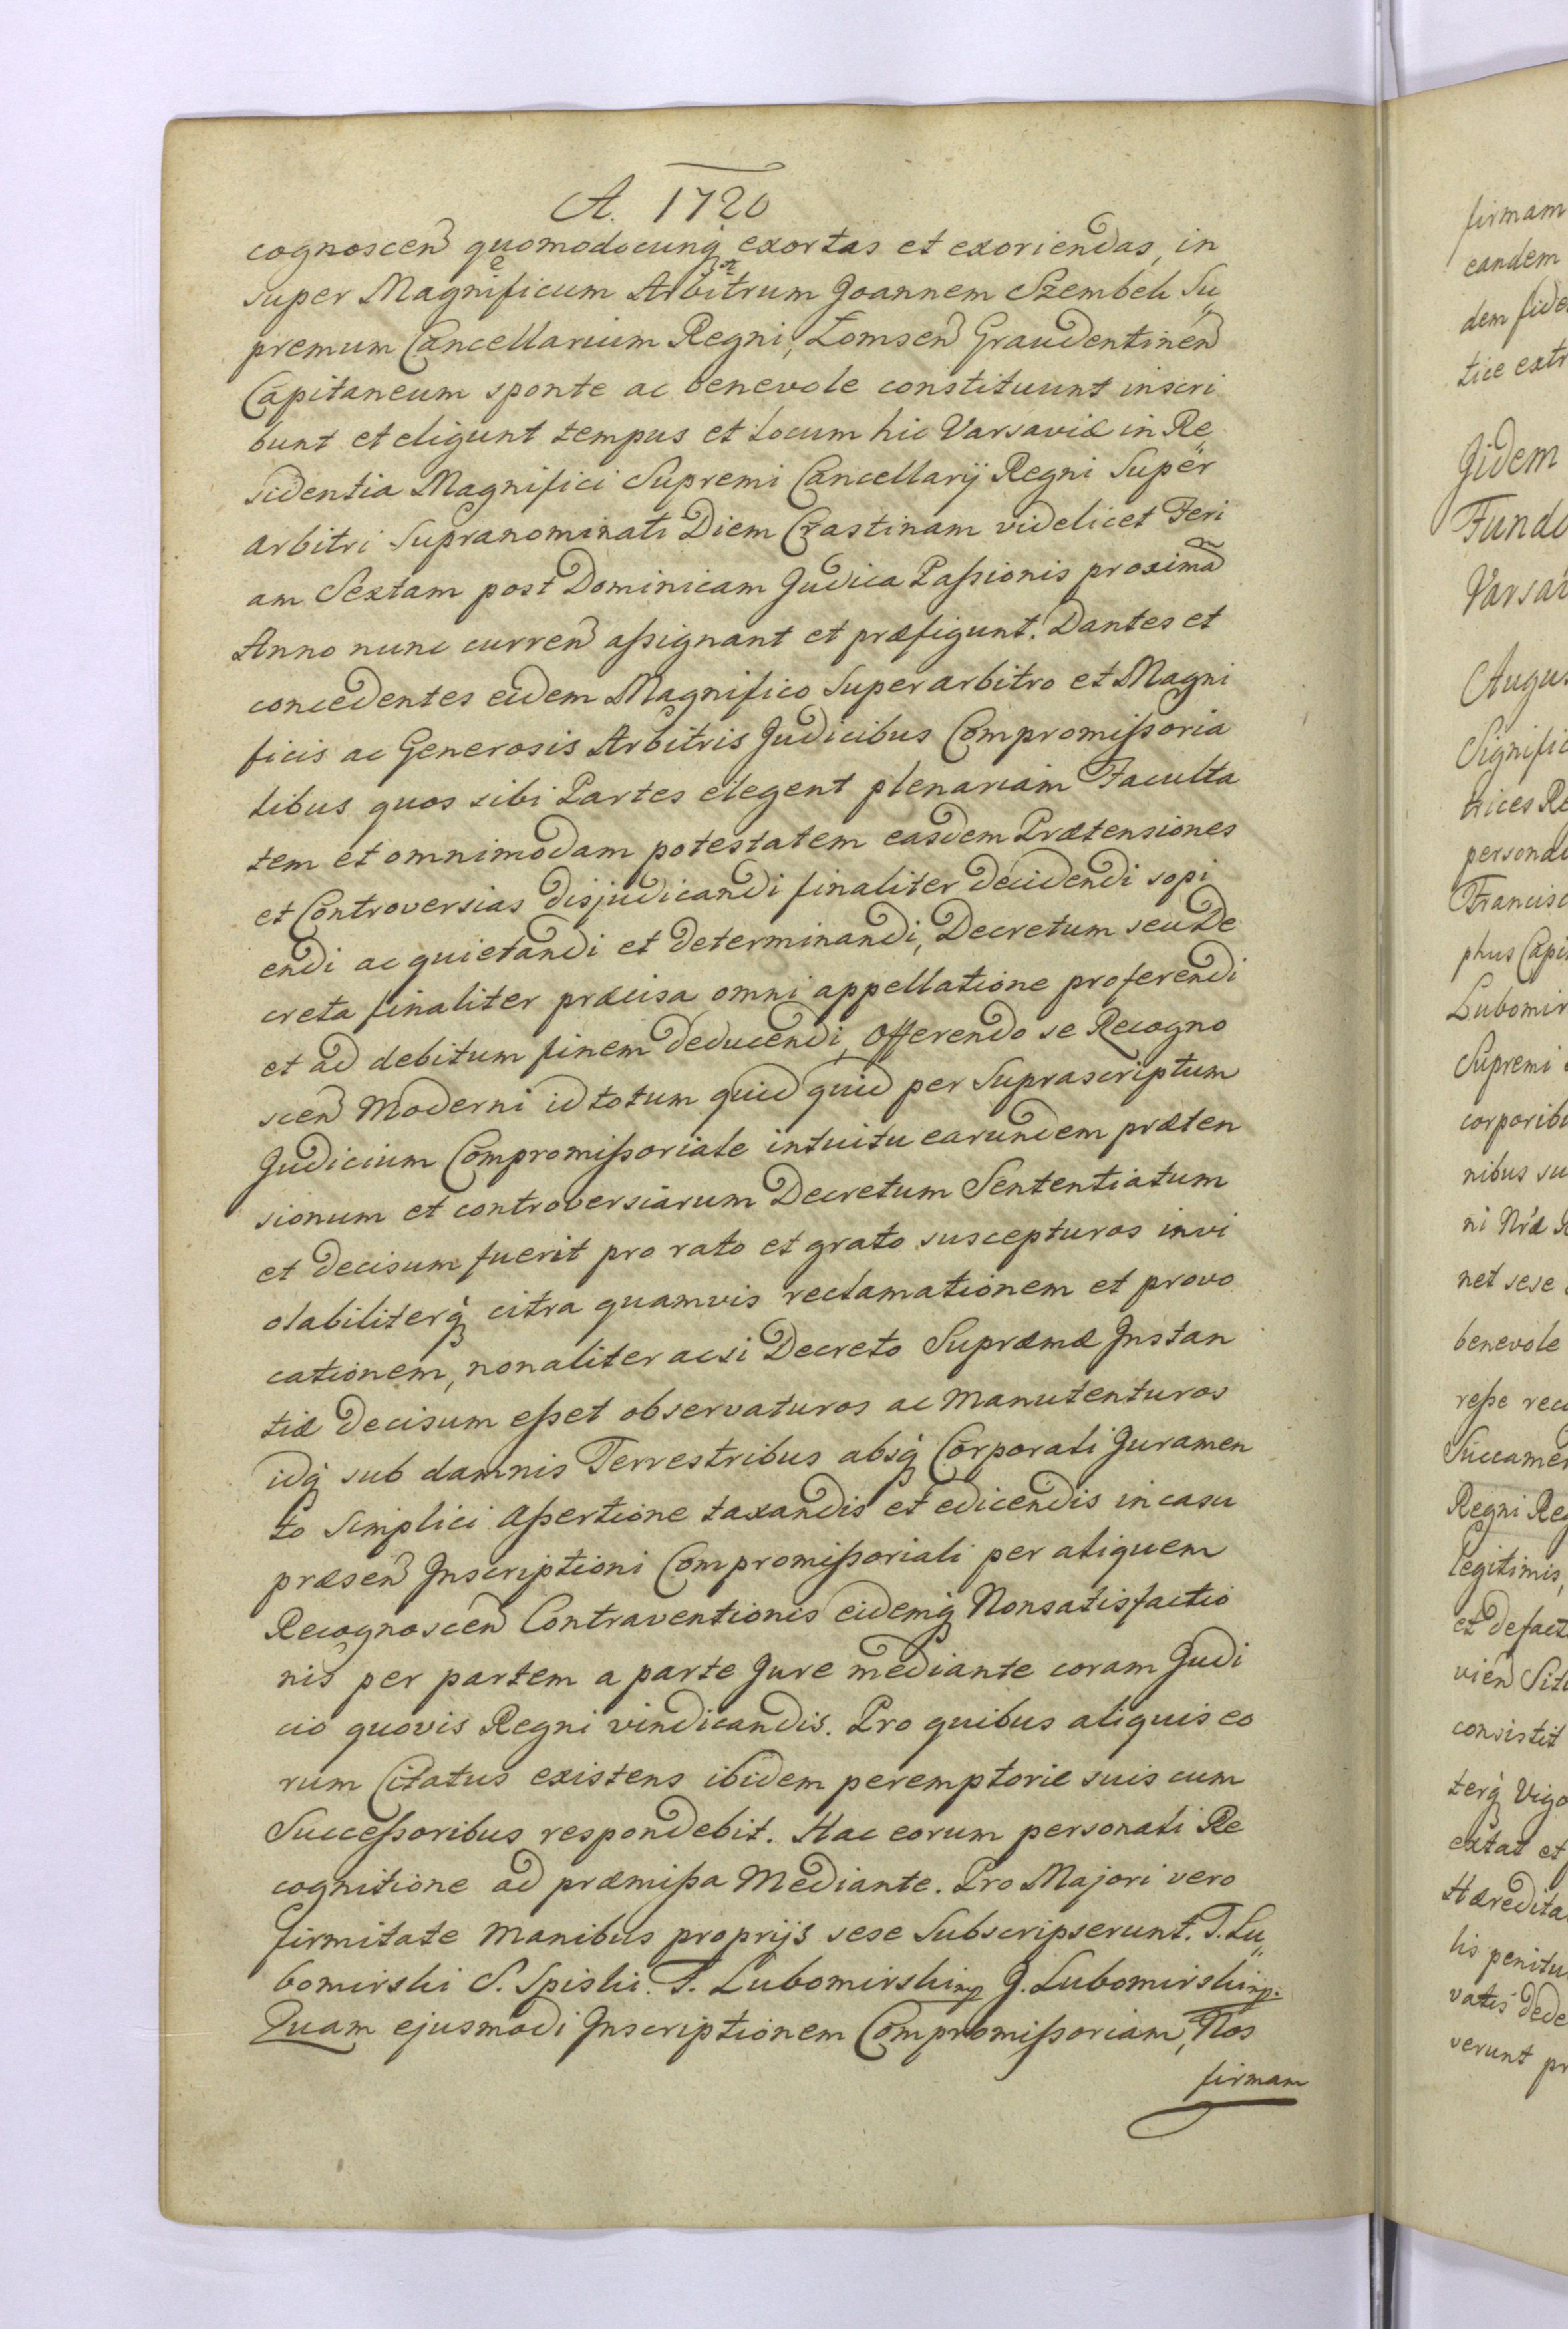 A. 1720
cognoscen quomodocunq exortas et exoriendas, in
super Magnificum Arbitrum Joannem Szembek Su„
premum Cancellarium Regni, Lomsen Graudentinen
Capitaneum sponte ac benevole constituunt inscri
bunt et eligunt tempus et Locum hic Varsaviæ in Re„
sidentia Magnifici Supremi Cancellarij Regni Super
arbitri Supranominati Diem Crastinam videlicet Feri
am Sextam post Dominicam Judica Paſsionis proximã
Anno nunc curren aſsignant et præfigunt. Dantes et
concedentes eidem Magnifico Superarbitro et Magni
ficis ac Generosis Arbitris Judicibus Compromiſsoria
libus quos sibi Partes elegent plenariam Faculta
tem et omnimodam potestatem easdem Prætensiones
et Controversias disjudicandi finaliter decidendi sopi
endi ac quietandi et determinandi, Decretum seu De
creta finaliter præcisa omni appellatione proferendi
et ad debitum finem deducendi, Offerendo se Recogno
scen Moderni id totum quid quid per Suprascriptum
Judicium Compromiſsoriale intuitu earundem præten
sionum et controversiarum Decretum Sententiatum
et decisum fuerit pro rato et grato suscepturos invi
olabiliterq citra quamvis reclamationem et provo
cationem, non aliter acsi Decreto Supræmæ Instan
tiæ decisum eſset observaturos ac manutenturos
idq sub damnis Terrestribus absq Corporali Juramen
to simplici aſsertione taxandis et edicendis in casu
præsen Inscriptioni Compromiſsoriali per aliquem
Recognoscen Contraventionis eidemq Nonsatisfactio
nis per partem a parte Jure mediante coram Judi
cio quovis Regni vindicandis. Pro quibus aliquis eo
rum Citatus existens ibidem peremptorie suis cum
Succeſsoribus respondebit. Hac eorum personali Re
cognitione ad præmiſsa Mediante. Pro Majori vero
firmitate manibus proprijs sese Subscripserunt. T. Lu„
bomirski S. Spiski. F. Lubomirski mp J. Lubomirski mp.
Quam ejusmodi Inscriptionem Compromiſsoriam, Nos
firmam
firmam
eandem
dem fide
tice extr
Jidem
Fund
Varsa
Augus
Signific
trices Re
persona
Francisc
phus Capi
Lubomir
Supremi
corporib
nibus su
ni Nræ
net sese
benevole
reſse rec
Succame
Regni Reg
legitimis,
et defact
vien Sit
consistit
terq Vigo
extat et
Hæredita
lis penitu
vatis dede
verunt pr